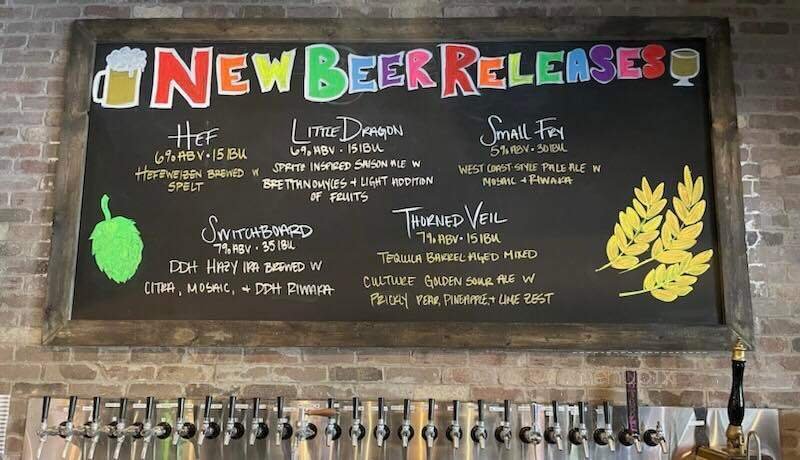 NEW BEER RELEASES
HEF
6% ABV · 15 IBU
HEFEWEIZEN BREWED W
SPELT
LITTLE DRAGON
6% ABV · 15 IBU
SPRITE INSPIRED SAISON ALE W
BRETTANOMYCES + LIGHT ADDITION
OF FRUITS
SMALL FRY
5% ABV · 30 IBU
WEST COAST STYLE PALE ALE W
MOSAIC & RIWAKA
SWITCHBOARD
7% ABV · 35 IBU
DDH HAZY IPA BREWED W
CITRA, MOSAIC, & DDH RIWAKA
THORNED VEIL
7% ABV · 15 IBU
TEQUILA BARREL AGED MIXED
CULTURE GOLDEN SOUR ALE W
PRICKLY PEAR, PINEAPPLE, + LIME ZEST
menupix